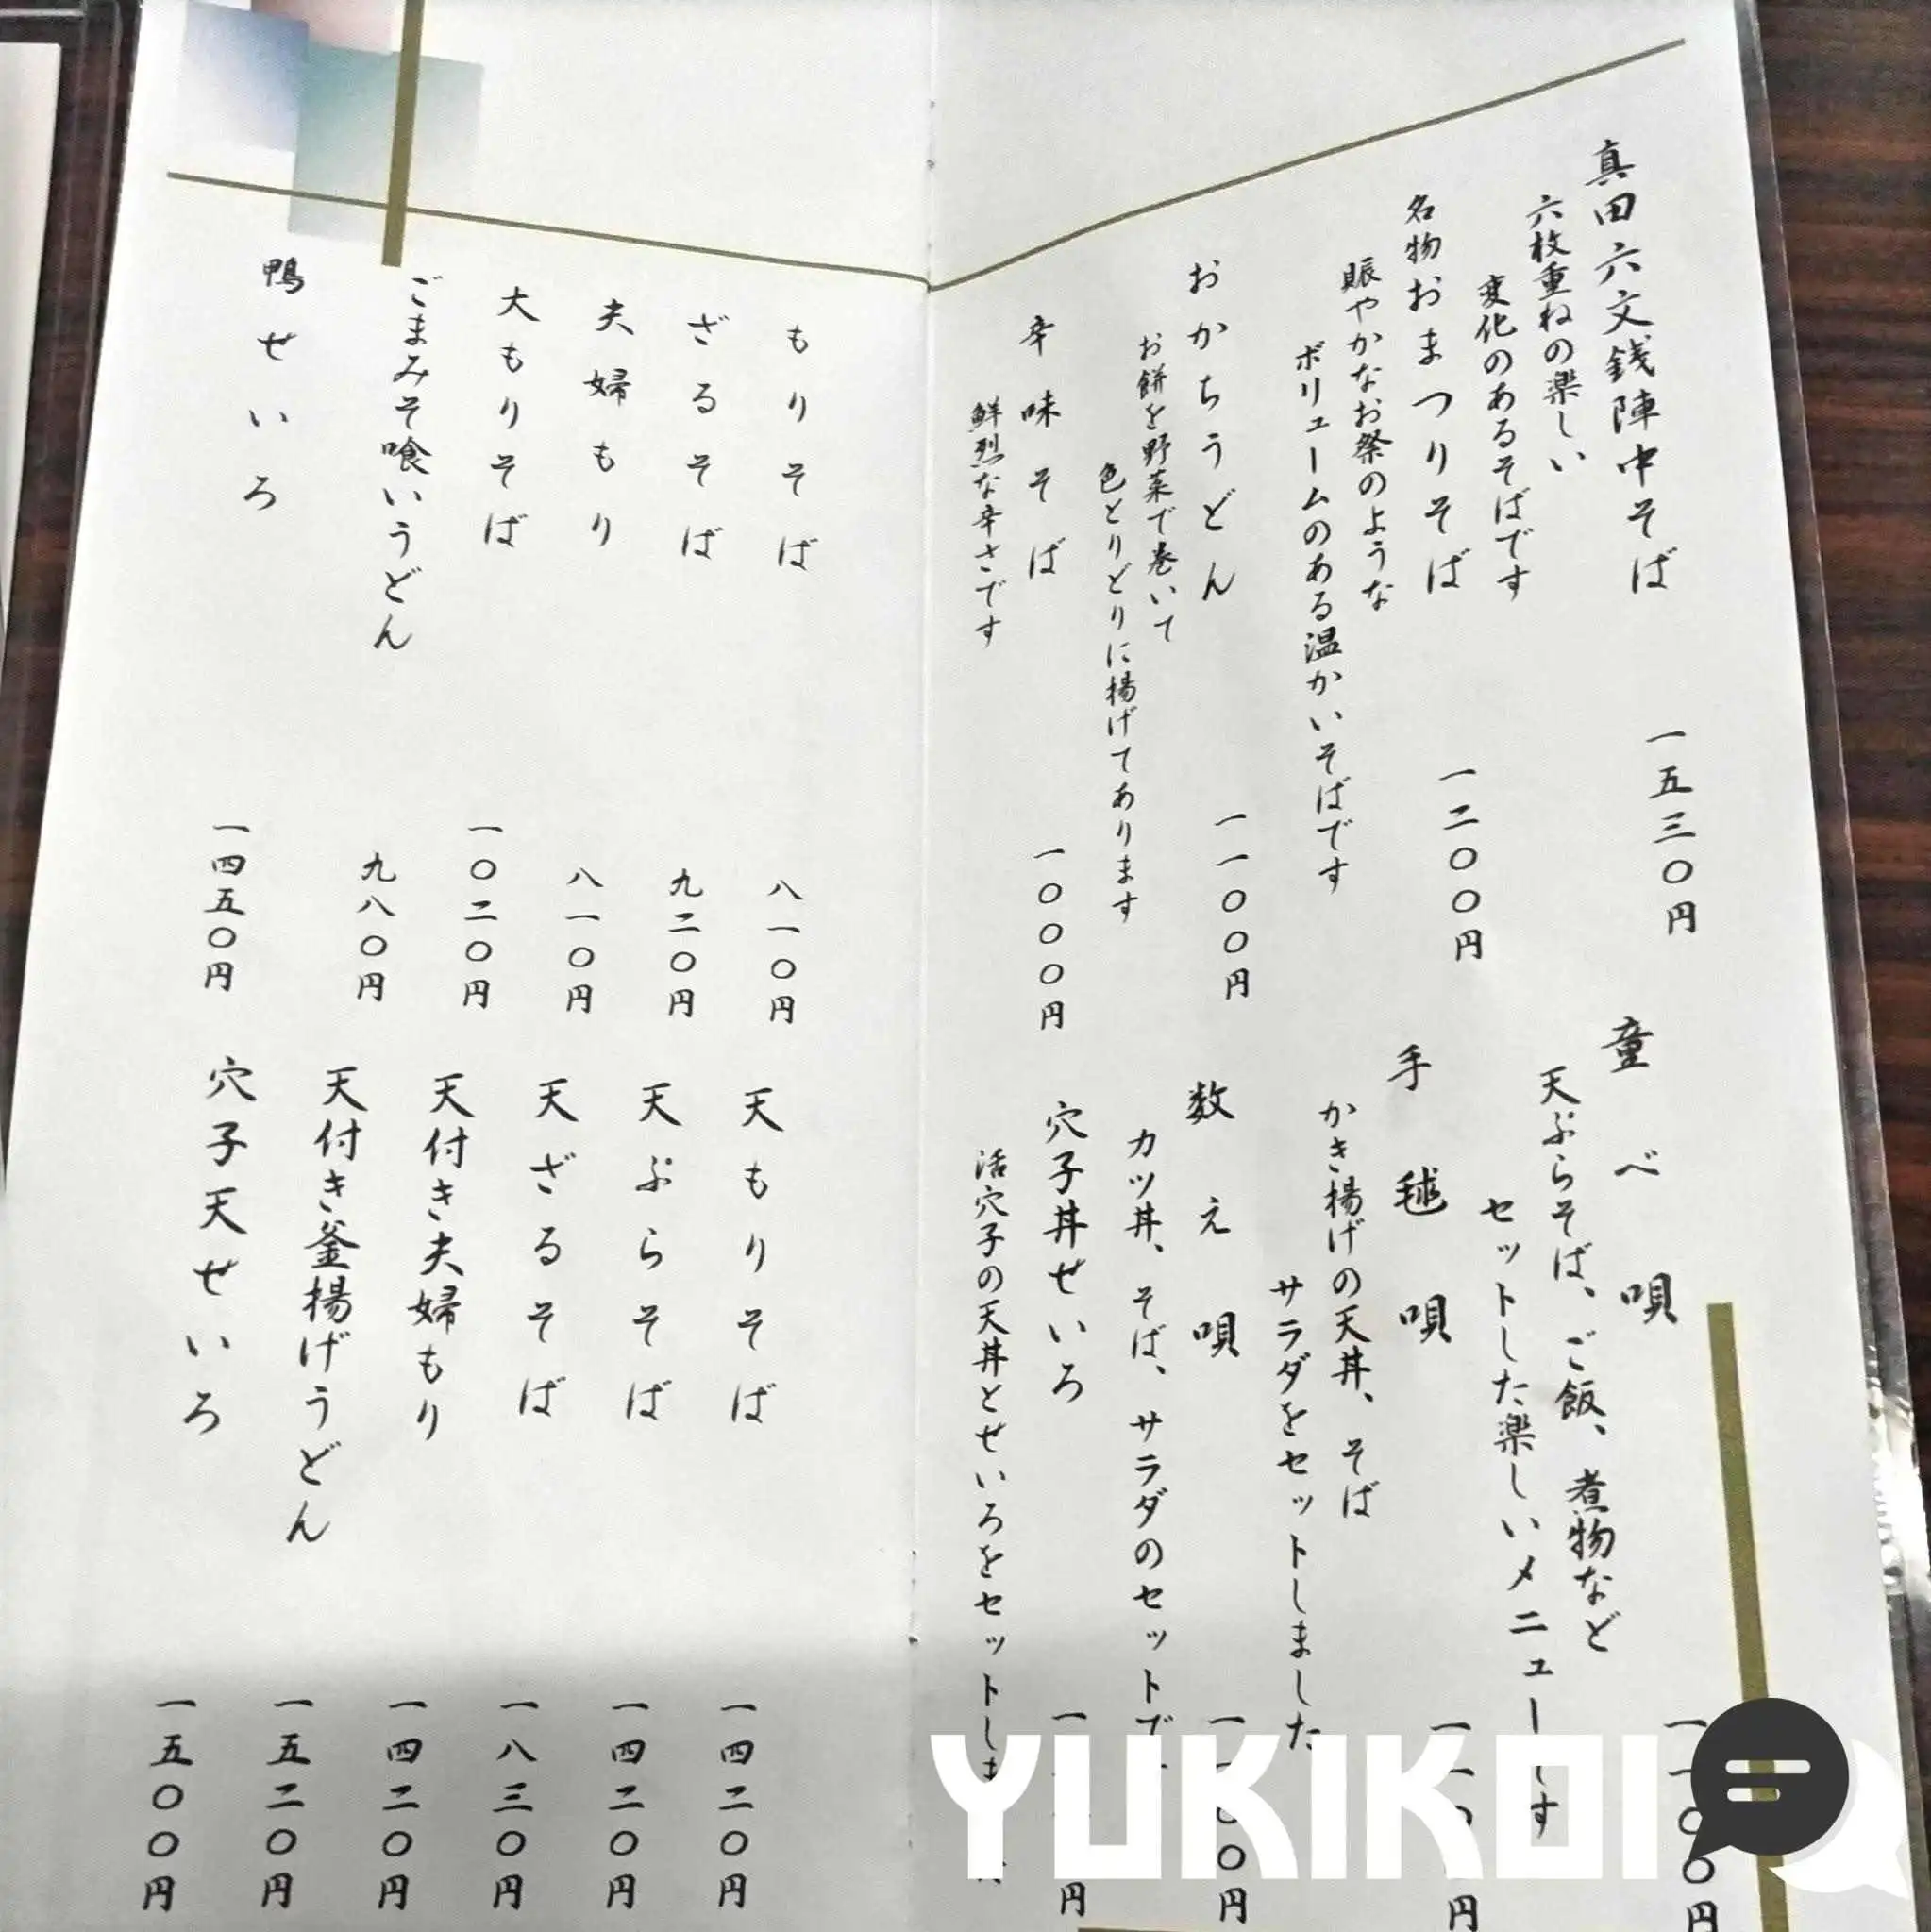 真田六文銭陣中そば
六枚重ねの楽しい
変化のあるそばです
一五三〇円
名物おまつりそば
賑やかなお祭のような
ボリュームのある温かいそばです
一二〇〇円
おかちうどん
お餅を野菜で巻いて
色とりどりに揚げてあります
一一〇〇円
辛味そば
鮮烈な辛さです
一〇〇〇円
童べ唄
天ぷらそば、ご飯、煮物など
セットした楽しいメニュー
手毬唄
かき揚げの天丼、そば
サラダをセットしました
数え唄
カツ丼、そば、サラダのセットで
穴子丼せいろ
活穴子の天丼とせいろをセットしま
もりそば
八一〇円
ざるそば
九二〇円
夫婦もり
八一〇円
大もりそば
一〇二〇円
ごまみそ喰いうどん
九八〇円
鴨せいろ
一四五〇円
天もりそば
一四二〇円
天ぷらそば
一四二〇円
天ざるそば
一八三〇円
天付き夫婦もり
一四二〇円
天付き釜揚げうどん
一五二〇円
穴子天せいろ
一五〇〇円
YUKIKOI